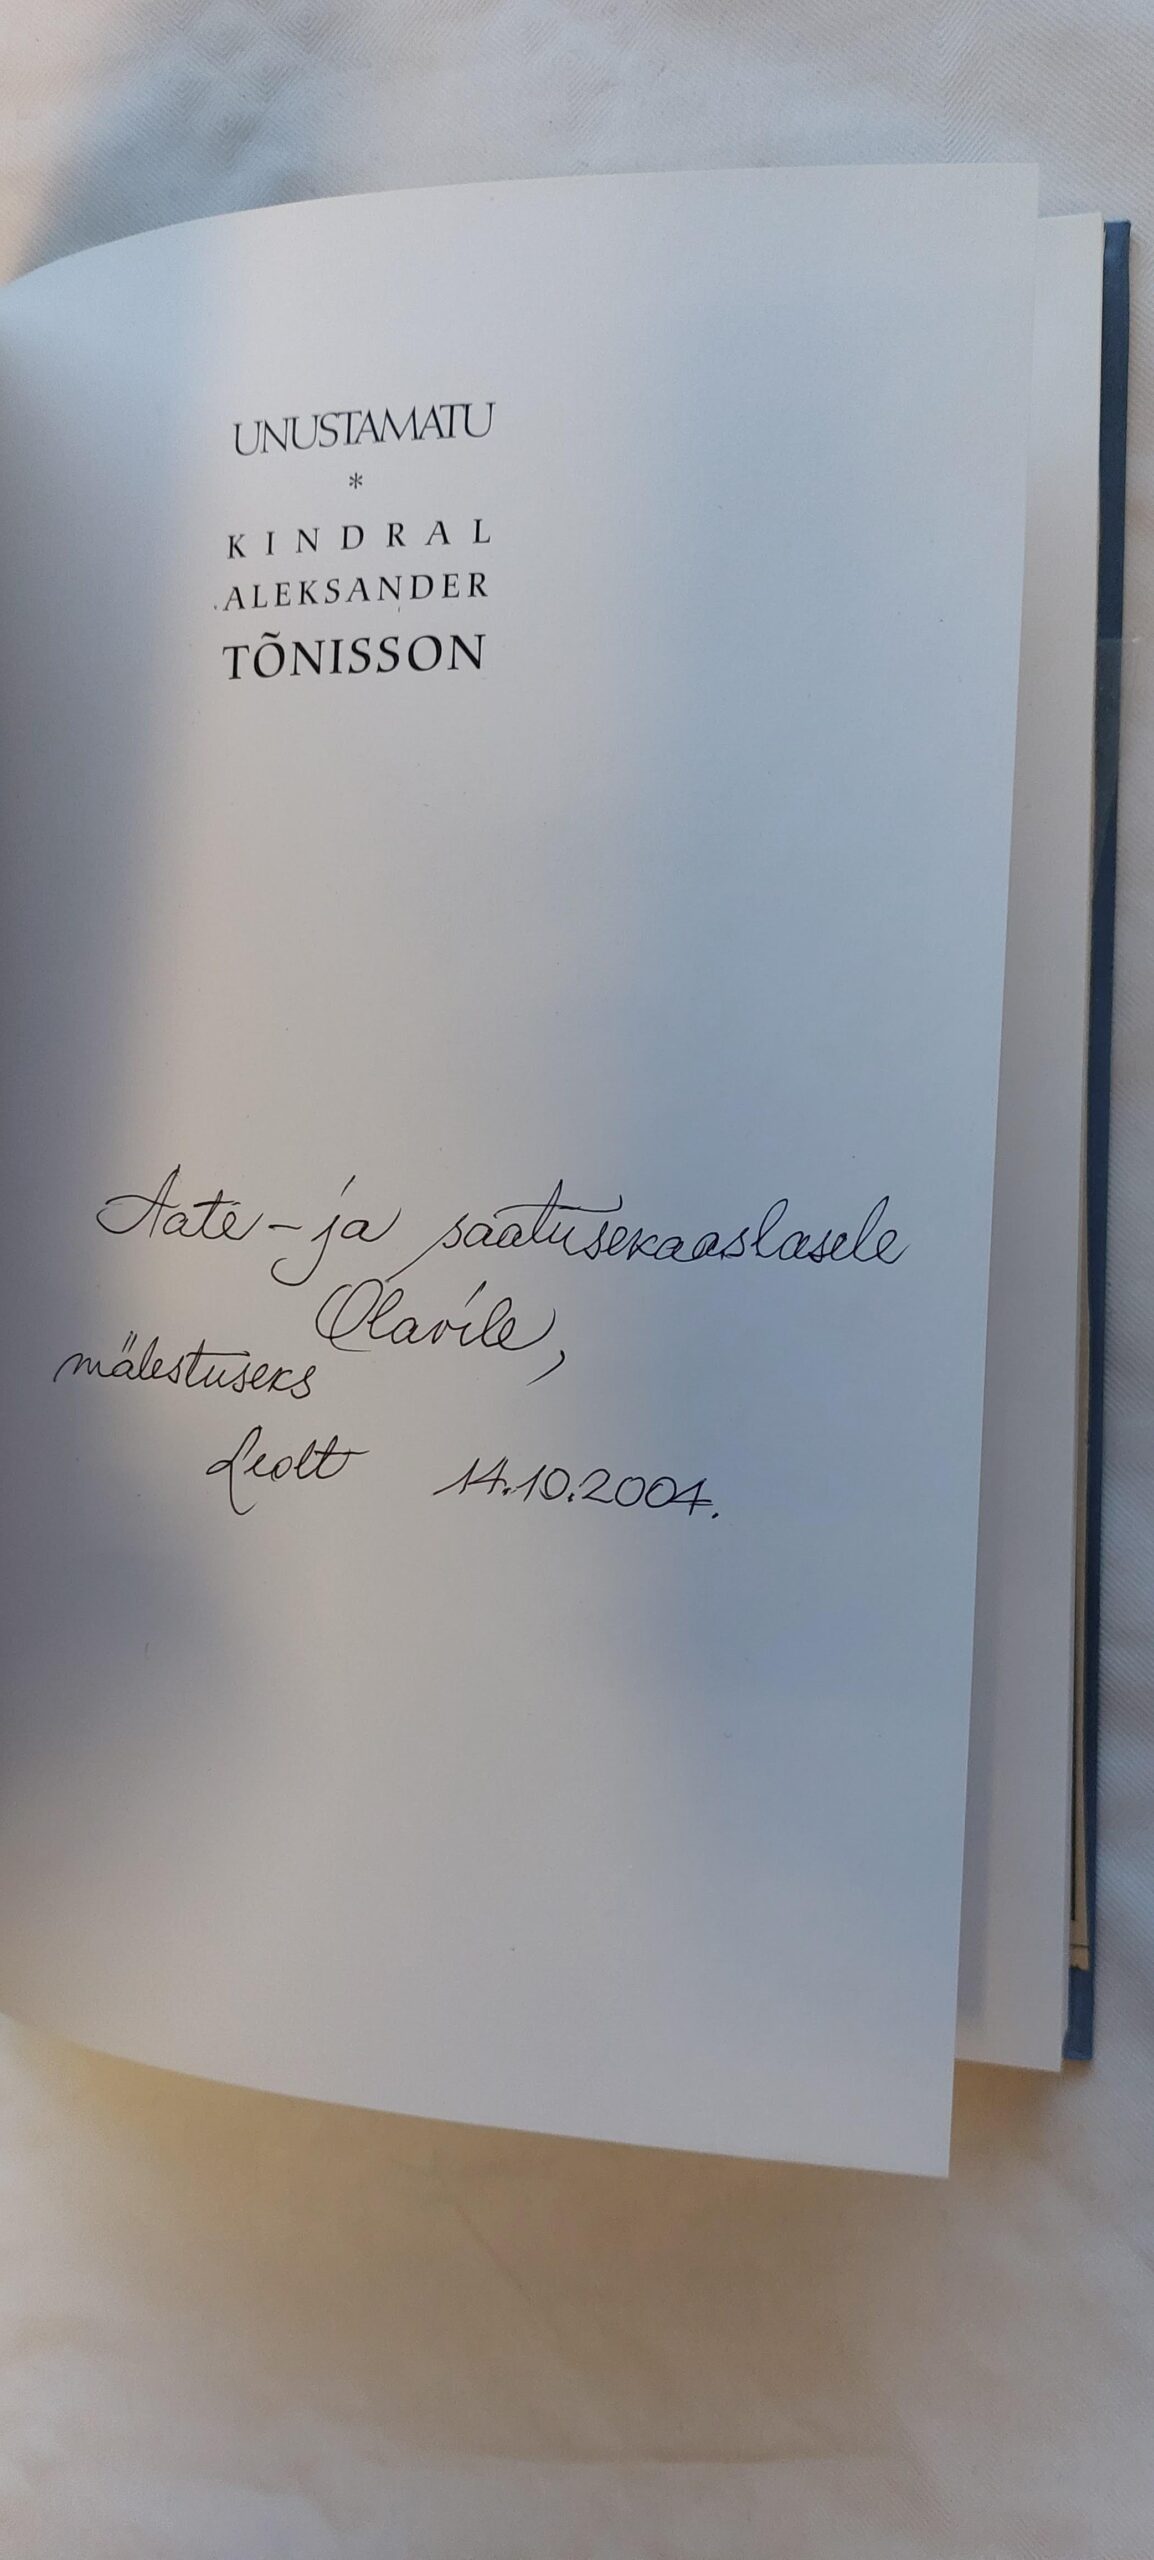 UNUSTAMATU
*
KINDRAL
ALEKSANDER
TÕNISSON
Aate-ja saatusekaaslasele
Olavile,
mälestuseks
Leolt 14.10.2004.